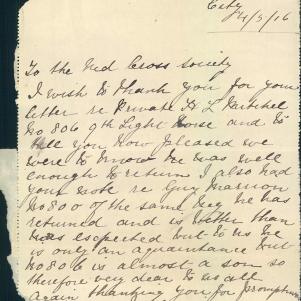 City
4/5/16
To the Red Cross society
I wish to thank you for your
letter re Private H L Mitchel
No 806 9th Light Horse and to
tell you how pleased we
were to know he was well
enough to return I also had
your note re Guy Marrion
No 800 of the same Reg he has
returned and is better than
was expected but to us he
is only an aquaintance but
No 806 is almost a son so
therefore very dear to us all
Again thanking you for promptness